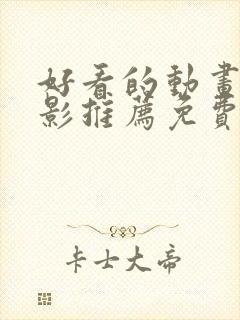 好看的動畫
影推薦免費
卡士大帝